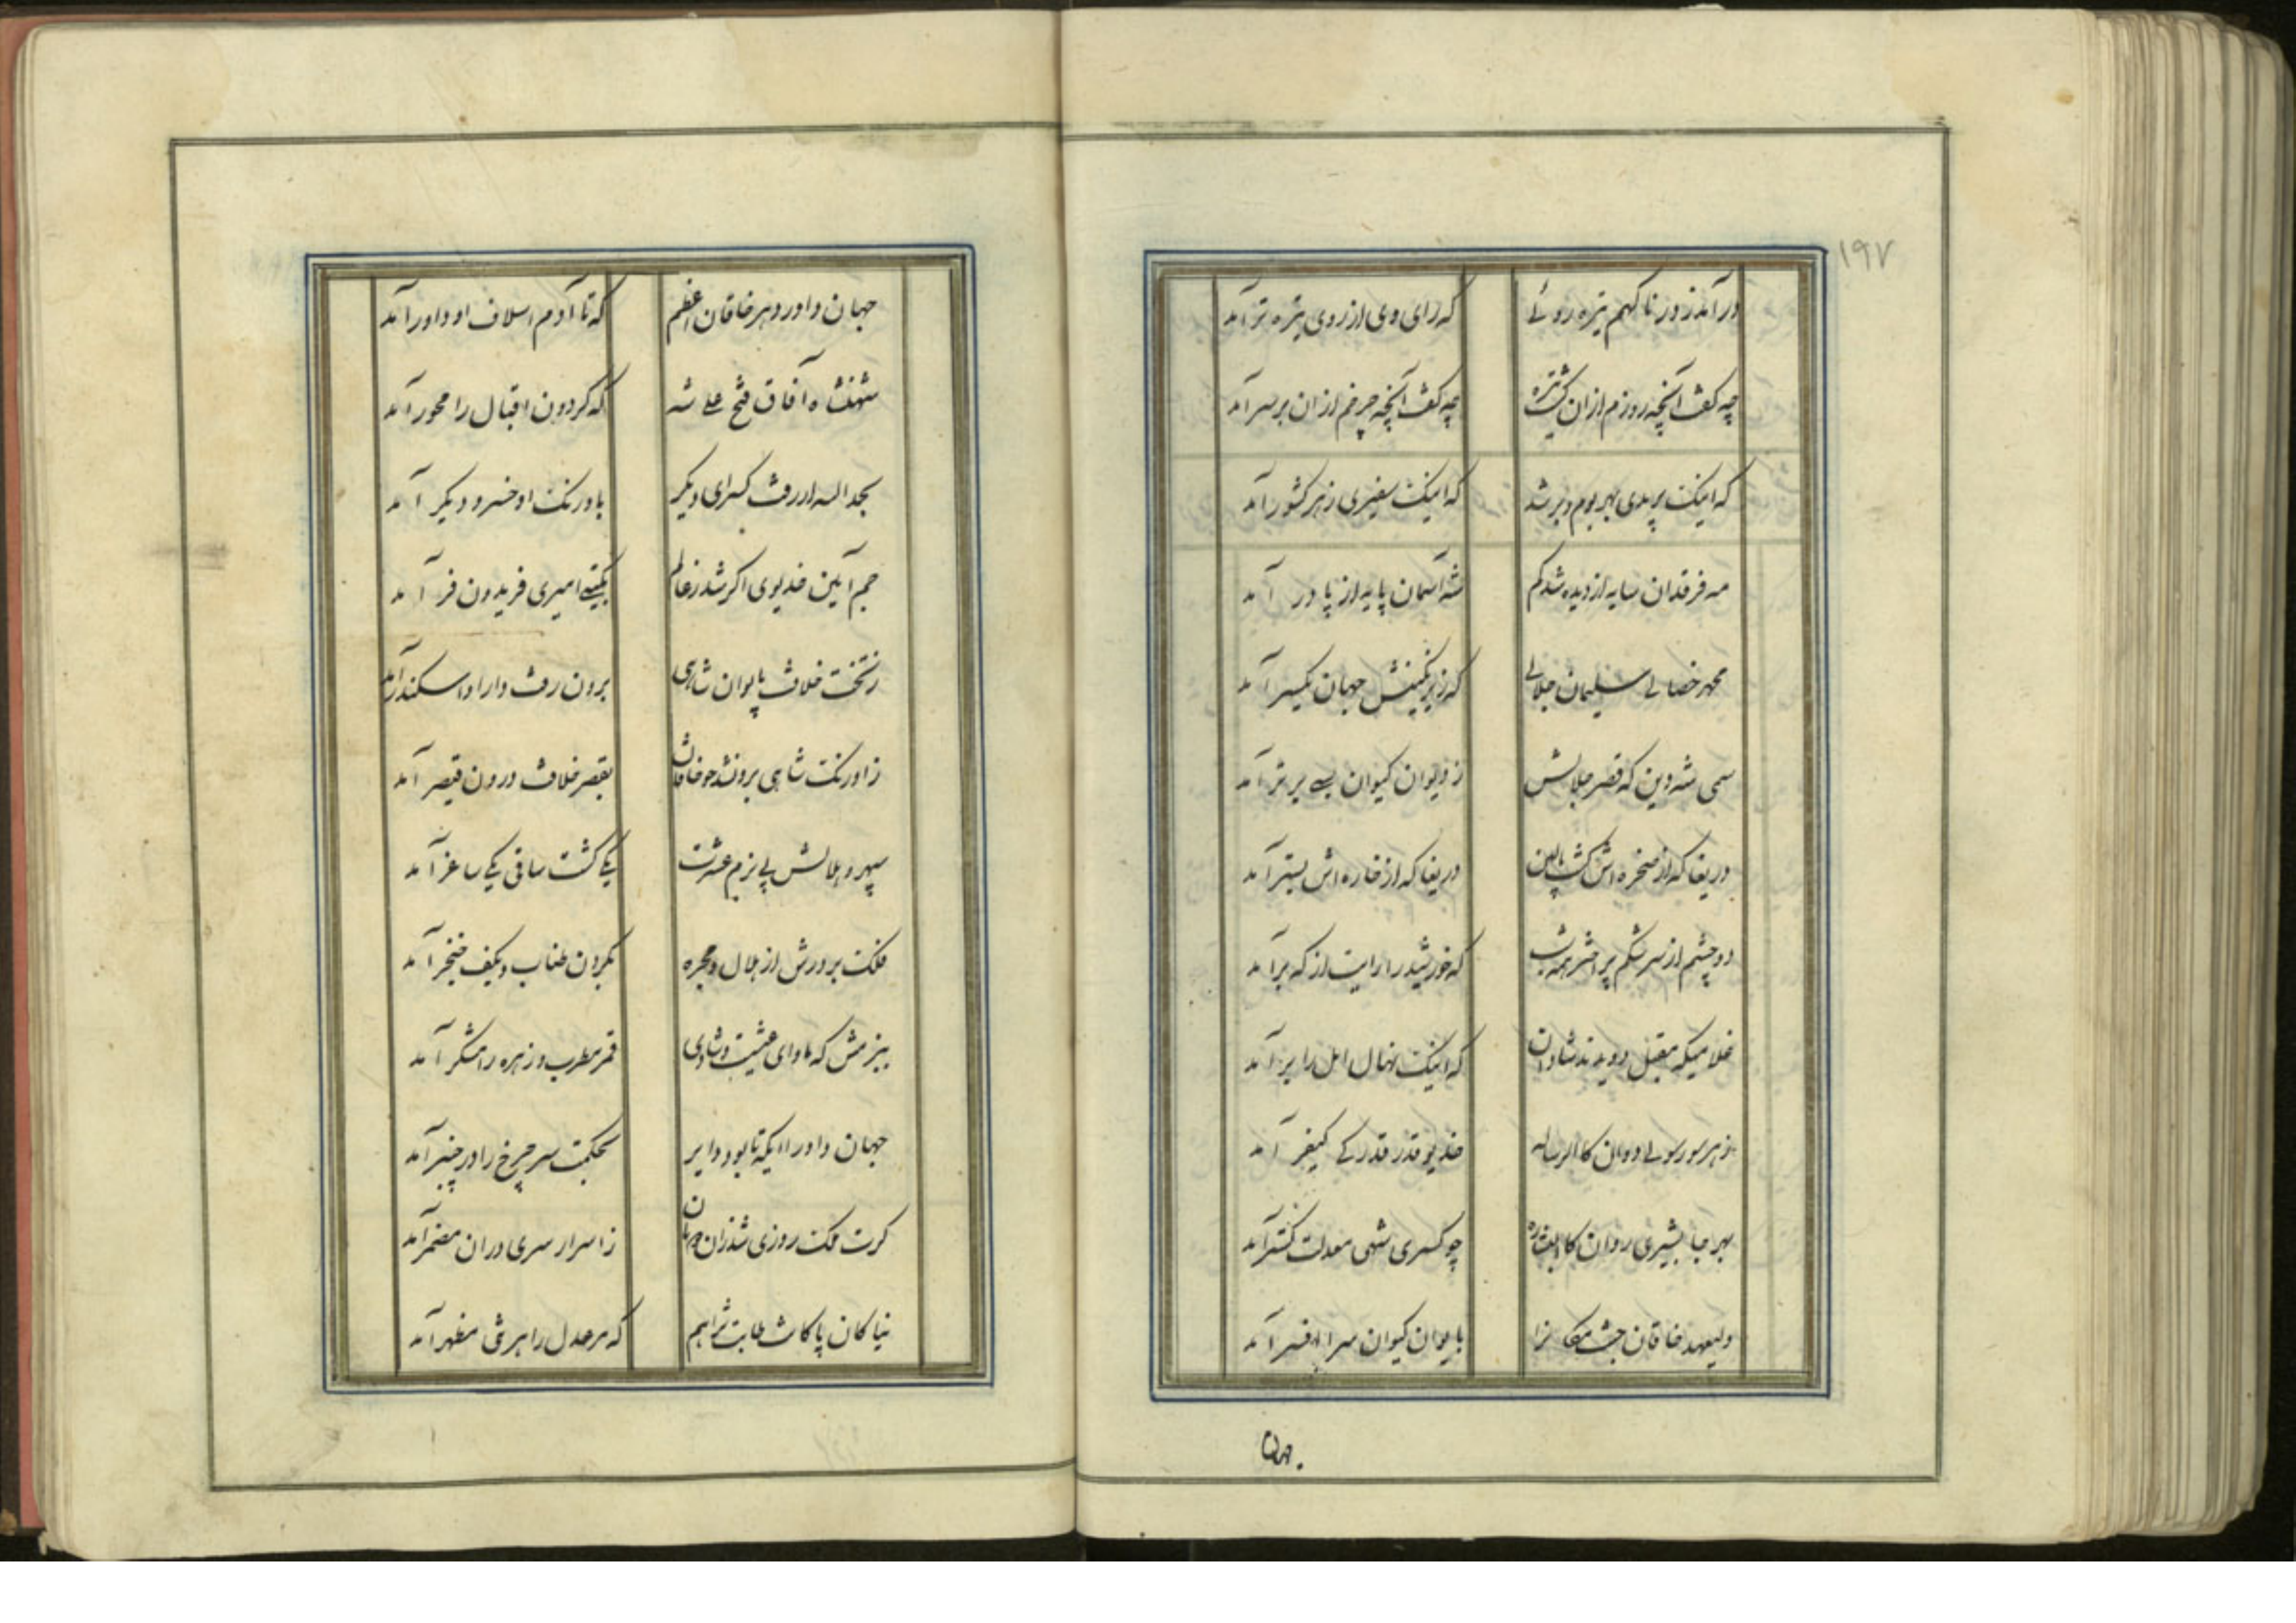 ۱۹۷
درآمد ز در ناگهم تیره روئی که رای وی از روی تیره تر آمد
چه گفت آنچه روزم از آن گشت تیره چه گفت آنچه چرخم از آن بر سر آمد
که اینک بریدی بهر بوم و بر شد که اینک سفیری ز هر کشور آمد
مه فرقدان سایه از دیده شد کم شه آسمان پایه از پا در آمد
محمد خصالی سلیمان جلالی که زیر نگینش جهان یکسر آمد
سمی شه دین که قصر جلالش ز ایوان کیوان بسی برتر آمد
دریغا که از صخره اش گشت بالین دریغا که از خاره اش بستر آمد
دو چشم از سرشکم پر اختر همه شب که خورشید را رایت از که برآمد
غلامیکه مقبل دویدند شادان که اینک نهال امل را بر آمد
ز هر سو رسولی دوان کالرساله خدیو قدر قدر کی کیفر آمد
بهر جا بشیری روان کالبشاره چو کسری شهی معدلت گستر آمد
ولیعهد خاقان جنت مکانرا بایوان کیوان سرا افسر آمد
جهان
جهان داور دهر خاقان اعظم که تا آدم اسلاف او داور آمد
شهنشاه آفاق فتح علی شه که گردون اقبال را محور آمد
بحمد الله ار رفت کسرای دیگر باورنگ او خسرو دیگر آمد
جم آیین خدیوی اگر شد ز عالم بگیتی امیری فریدون فر آمد
ز تخت خلافت بایوان شاهی برون رفت دارا و اسکندر آمد
ز اورنگ شاهی برون شد چو خاقان بقصر خلافت درون قیصر آمد
سپهر و هلالش پی بزم عشرت یکی گشت ساقی یکی ساغر آمد
فلک بر درش از هلال و مجره بگردن طناب و بکف خنجر آمد
ببزمش که ماوای عیشست و شادی قمر مطرب و زهره رامشگر آمد
جهان داورا ایکه تا بود دایر بحکمت سر چرخ را در چنبر آمد
گرت ملک روزی شد زان ز اسرار سری در آن مضمر آمد
نیاکان پاکات که مر عدل را هر شی مظهر آمد